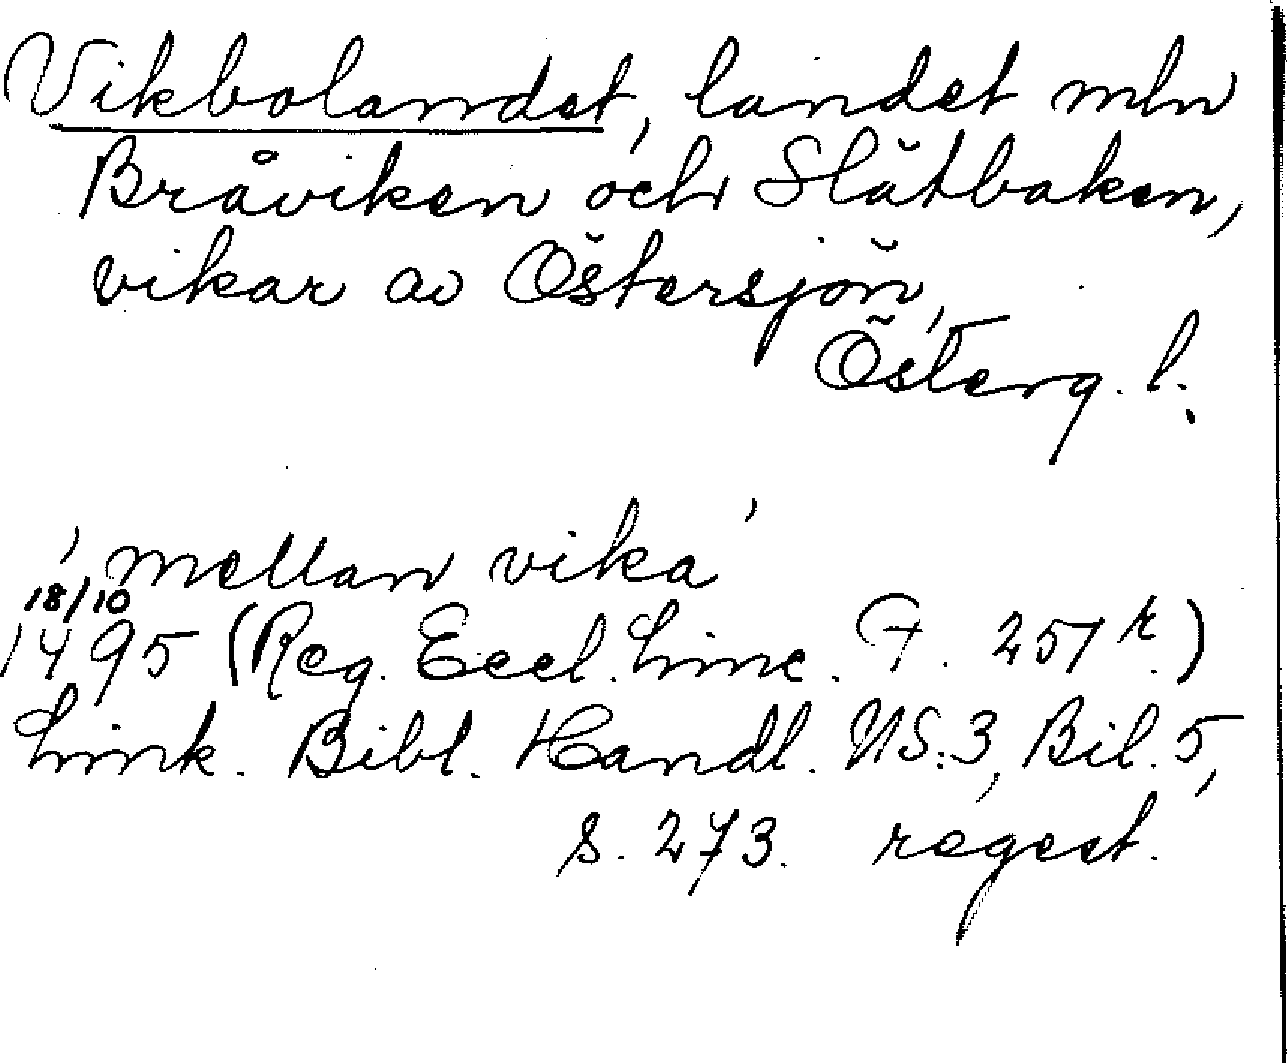 Vikbolandet, landet mln
Bråviken och Slätbaken,
vikar av Östersjön,
Österg. l.
'mellan vika'
18/10
1495 (Reg. Eccl. Linc. F. 251 r.)
Link. Bibl. Handl. NS:3, Bil. 5,
s. 273. regest.